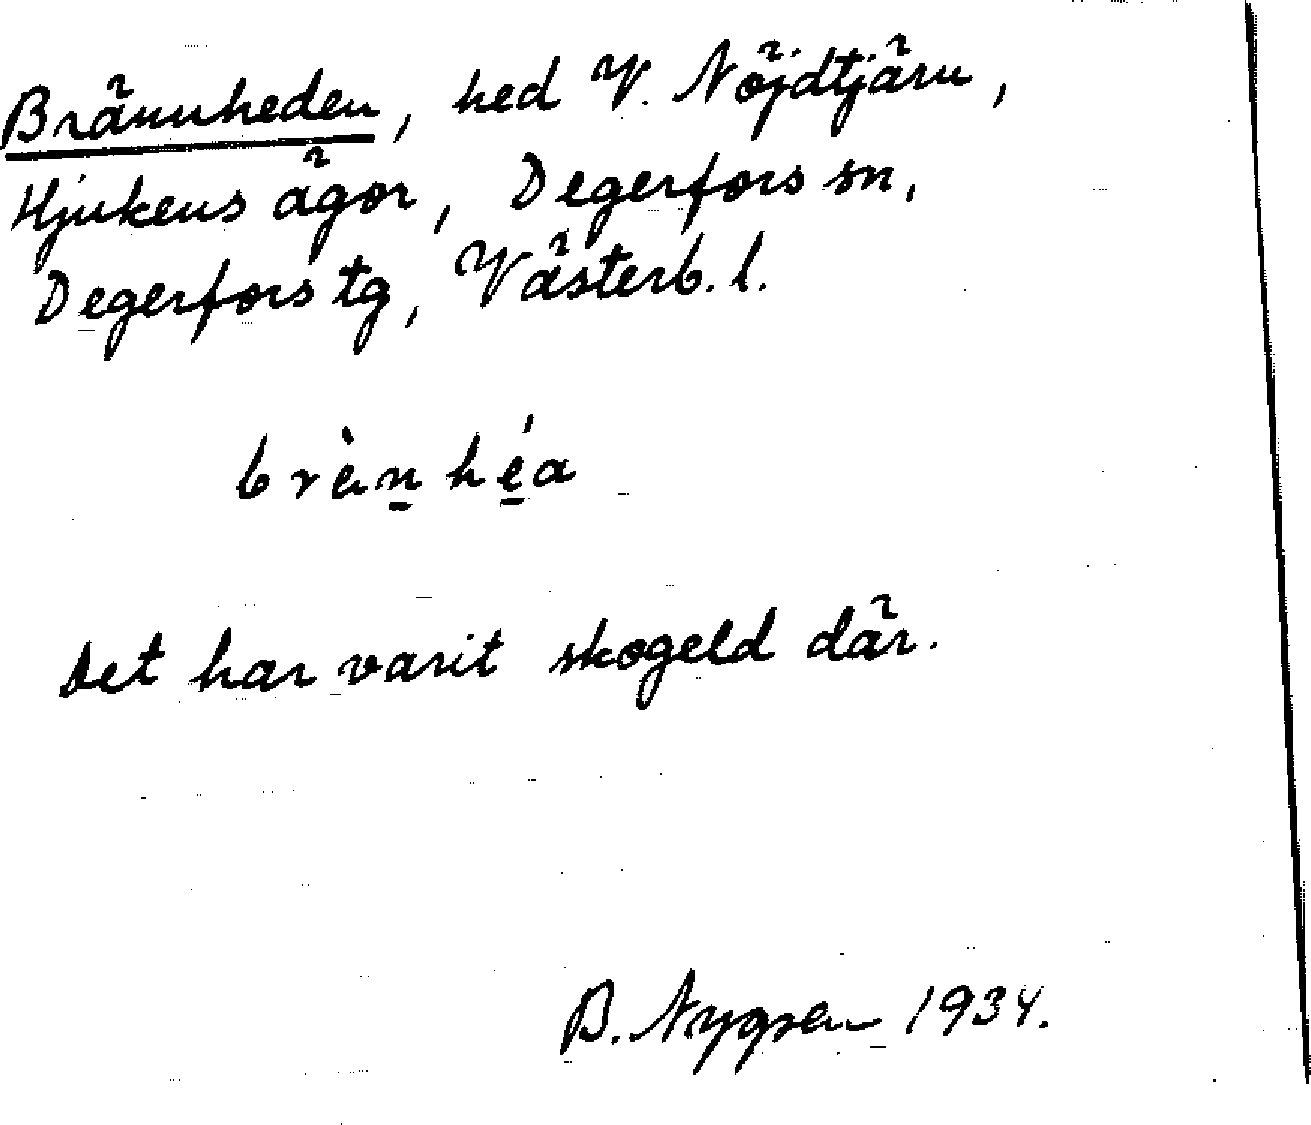 Brännheden, hed V. Nöjdtjärn,
Hjukens ägor, Degerfors sn,
Degerfors tg, Västerb. l.
brèn̲hé̲a
Det har varit skogeld där.
B. Nygren 1934.